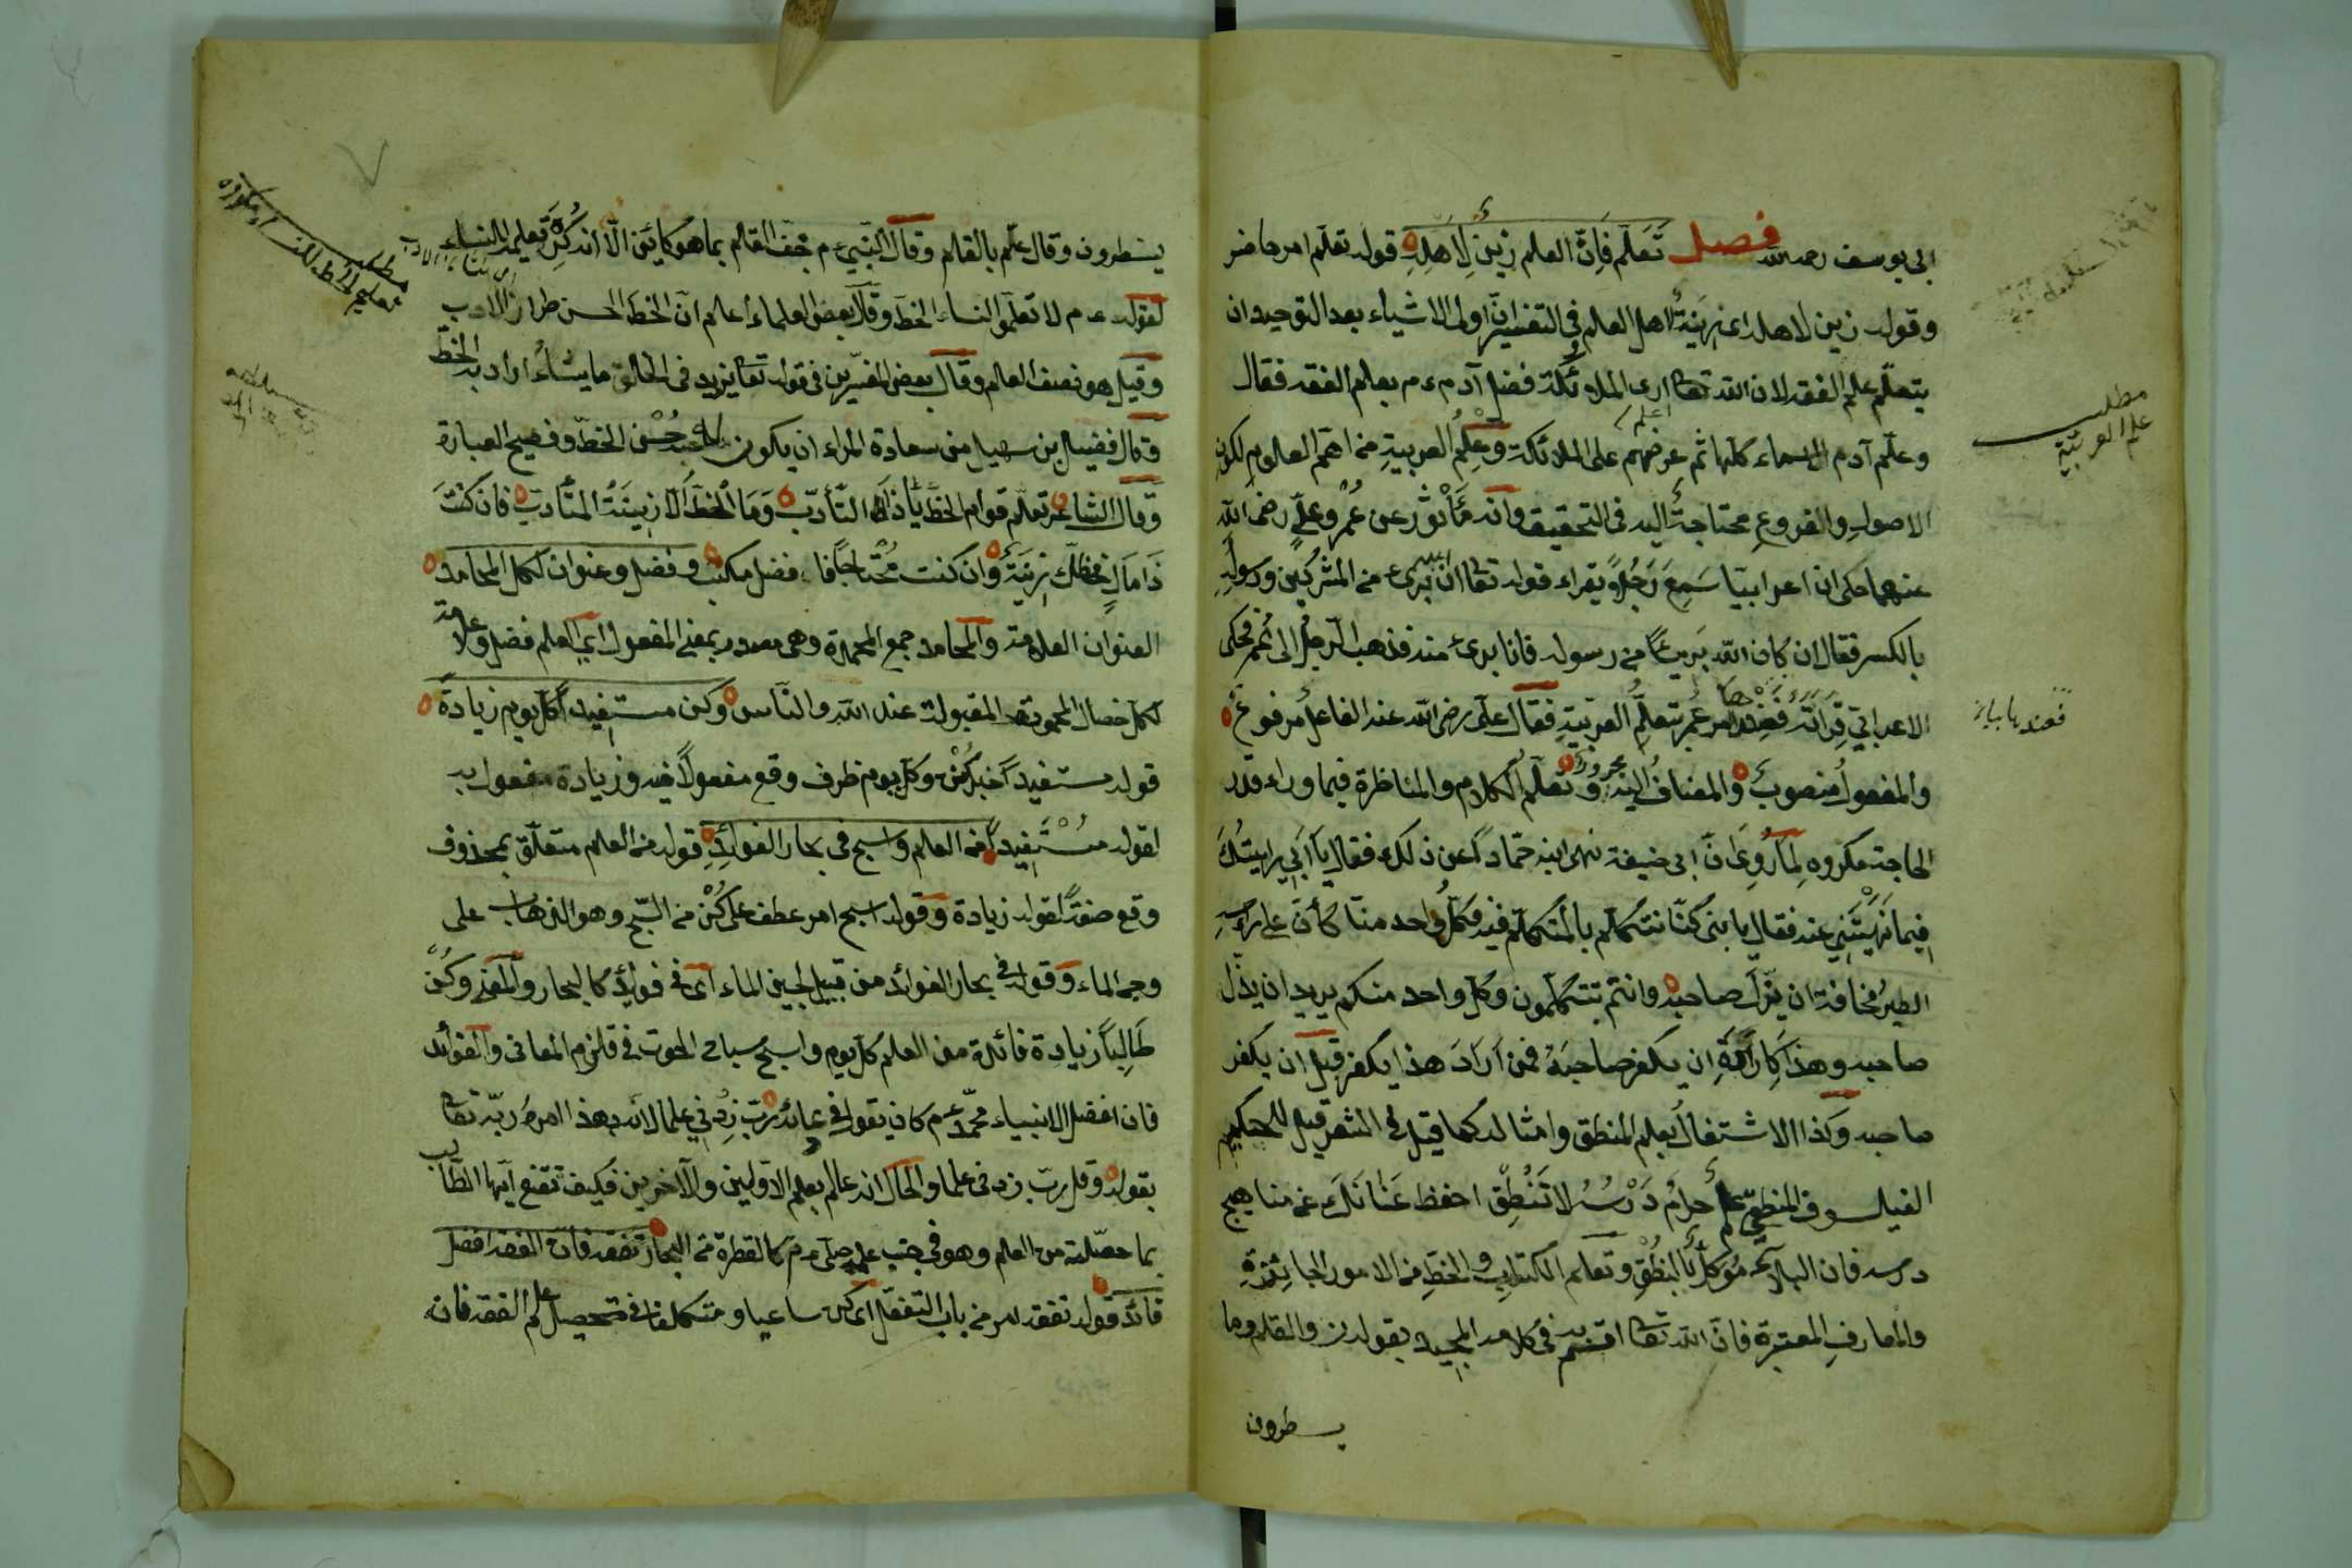 ابى يوسف رحمه الله فصل تَعَلَّم فَاِنَّ العلم زَيْنٌ لِاَهْلِهِ قوله تعلّم امر حاضر
وقوله زين لاهله اى زينةُ لاهل العلم فى التفسير انّ اولى الاشياء بعد التوحيد ان
يتعلّم علم الفقه لان الله تعا ارى الملائكة فضل آدم ع م بعلم الفقه فقال
وعلّم آدم الاسماء كلّها ثم عرضهم على الملائكة وعِلْمُ العربيةِ من اهمّ العلوم لكون
الاصولِ والفروعِ محتاجةً اليه فى التحقيق وانّه مَأْثُورٌ عن عُمَرَ وعلىٍّ رضى الله
عنهما حكى ان اعرابيّا سَمِعَ رَجُلاً يقراء قوله تعا ان الله برىء من المشركين ورسولِهِ
بالكسر فقال ان كان الله بَرِيئاً من رسوله فانا برىء منه فذهب الرجل الى عُمَر فحكى
الاعرابىّ قِرَائَتَهُ فعندها امر عُمَر بتعلّم العربيّةِ فقال علىّ رضى الله عنه الفاعلُ مرفوعٌ
والمفعولُ منصوبٌ والمضافُ اليه مجرورٌ وتعلّمُ الكلام والمناظرة فيما وراء قدر
الحاجة مكروه لِمَا رُوِىَ انّ ابى حنيفة نهى ابنه حمّاداً عن ذلك فقال يا اَبِى رايتُكَ
فيما نَهَيْتَنِى عنه فقال يا بنى كنّا نتكلّم بالمتكلّم فيه وكلُّ واحد منّا كأنّ على رأسِهِ
الطيرُ مخافة ان يزّلَ صاحبه وانتم تتكلّمون وكلّ واحد منكم يريد ان يذّل
صاحبه وهذا كَارَادَةِ ان يكفر صاحبَهُ فمن اَرَادَ هذا يكفر قبل ان يكفر
صاحبه وَكذا الاشتغالُ بعلم المنطق وامثاله كما قيل فى الشعر قيل للحكيم
الفيلسوف المنطقىّ حرامٌ دَرْسُهُ لا تَنْطِق احفظ عَنَانَكَ عن مناهج
درسه فان البلاءَ مُوَكَّلٌ بالنُطْقِ وتعلّم الكتابِ والخطِّ من الامور الجائِزةِ
والمعارفِ المعتبرة فانّ الله تعا اقسم به فى كلامه المجيد بقوله ن والقلم وما
يسطرون
مطلب
علم العربيّة
يسطرون وقال علّم بالقلم وقال النبّى ع م جفّ القلم بما هو كائن الاّ انه كُرِهَ تعليمه النساء
لقوله ع م لا تعلّموا النساء الخطّ وقال بعض العلماء اعلم انّ الخطّ الحسن طراز الادب
وقيل هو نصف العلم وقال بعض المفسّرين فى قوله تعا يزيد فى الخلق ما يشاءُ اراد به الخطّ
وقال فضيل بن سهيل من سعادة المراء ان يكون له حُسْن الخطّ وفصيح العبارة
وقال الشاعر تعلّم قوام الخطّ يا ذا التأدّب وَمَا الْخطّ اِلاّ زِينَةُ المتأدّبِ فان كنتَ
ذَا مَالٍ فخطّك زينةٌ وان كنت مُحْتاجاً فافضل مكسب وفضل وعنوان لكلّ المحامد
العنوان العلامة والمحامد جمع المحمدة وهى مصدر بمعنى المفعول اى العلم فضل وعلامة
لكلّ خصال المحمودة المقبولة عند الله والناس وكن مستفيداً كلّ يوم زيادةً
قوله مستفيداً خبر كُنْ وكلّ يوم ظرف وقع مفعولاً فيه وزيادة مفعول به
لقوله مُسْتَفِيداً من العلم واسبح فى بحار الفوائِدِ قوله من العلم متعلّق بمحذوف
وقع صفةً لقوله زيادة وقوله اسبح امر عطف على كُنْ من السّبح وهو الذهاب على
وجه الماء وقوله فى بحار الفوائد من قبيل لجين الماء اى فى فوائِدَ كالبحار والمعنى وكُنْ
طَالِباً زيادة فائدة من العلم كلّ يوم واسبح سباحَ الحوت فى قلزم المعانى والفوائد
فان افضل الانبياء محمّد ع م كان يقول فى دعائه ربّ زِدْنِى علما لانّه بهذا امره ربّه تعا
بقوله وقل ربّ زدنى علما والحال انه عالم بعلم الاوّلين والآخرين فكيف تقنع ايّها الطالب
بما حصّلته من العلم وهو فى جنب علمه صلى ع م كالقطرة من البحار تفقه فان الفقه افضل
قائد قوله تفقه امر من باب التفعّل اى كن ساعيا ومتكلفا فى تحصيل علم الفقه فان
مطلب
تعليم الخط للنساء مكروه